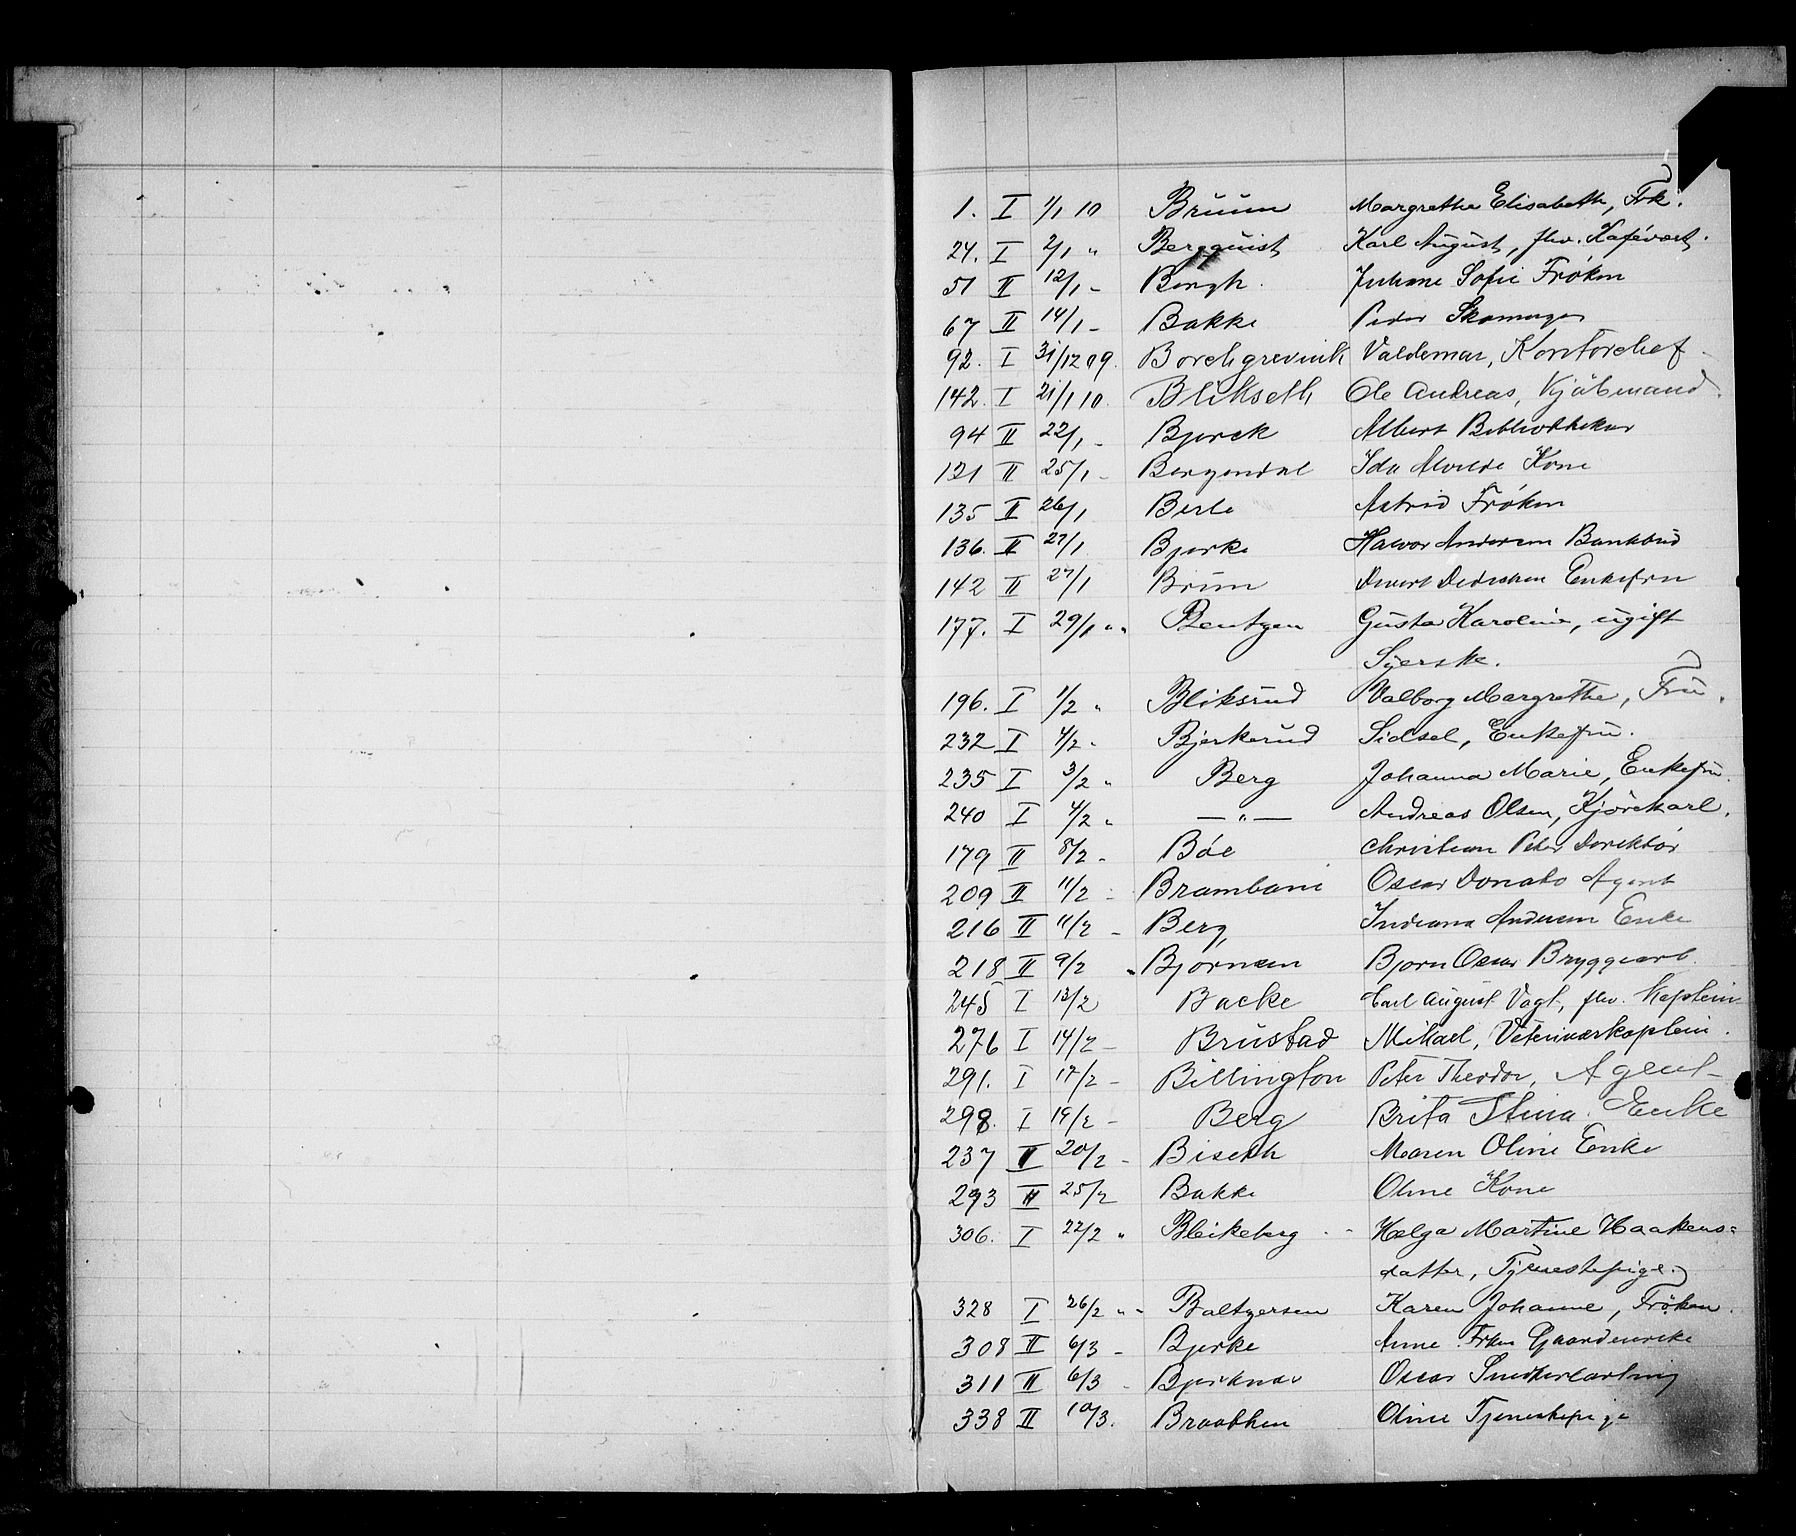 1. I 1/1 10 Bruun Margrethe Elisabeth, Frk.
24. I 2/1 " Bergquist Karl August, fhv. Kafévert.
51 II 12/1 - Bergh. Juliane Sofie Frøken
67 II 14/1 - Bakke Peder Skomager
92. I 31/12 09. Borchgrevink Valdemar, Kontorchef
142. I 21/1 10. Blikseth Ole Andreas, Kjøbmand.
94 II 22/1 - Bjerck Albert Bibliothekar
121 II 25/1 - Bergendal Ida Alvilde Kone
135 II 26/1 Berle Astrid Frøken
136. II 27/1 Bjerke Halvor Andersen Bankbud
142 II 27/1 Brun Enkefru
177. I 29/1 " " Bentzen Gusta Karoline, ugift
Syerske.
196. I 1/2 " Bliksrud Valborg Margrethe, Fru.
232 I 4/2 " Bjerkerud Sidsel, Enkefru.
235 I 3/2 " Berg Johanna Marie, Enkefru.
240 I 4/2 " — " — Andreas Olsen, Kjørekarl.
179 II 8/2 - Bøe Christian Peter Direktør
209 II 11/2 - Brambani Oscar Donato Agent
216 II 11/2 - Berg, Indiana Andersen Enke
218 II 9/2 " Bjørnsen Bjørn Oscar Bryggearb.
245 I 13/2 Backe Carl August Vogt, fhv. Kaptein
276 I 14/2 - Brustad Mikael, Veterinærkaptein.
291. I 17/2 - Billington Peter Theodor, Agent
298. I 19/2 - Berg Brita Stina. Enke
237 II 20/2 - Biseth Maren Oline Enke
293 II 25/2 Bakke Oline Kone
306. I 22/2 " Bleikeberg Helga Martine Haakens=
datter, Tjenestepige.
328 I 26/2 " " Baltzersen Karen Johanne, Frøken.
308 II 6/3 - Bjerke Anne Gaardenke
311 II 6/3 - Bjerknes Oscar Snedkerlærling
338 II 10/3. Braathen Oline Tjenestepige